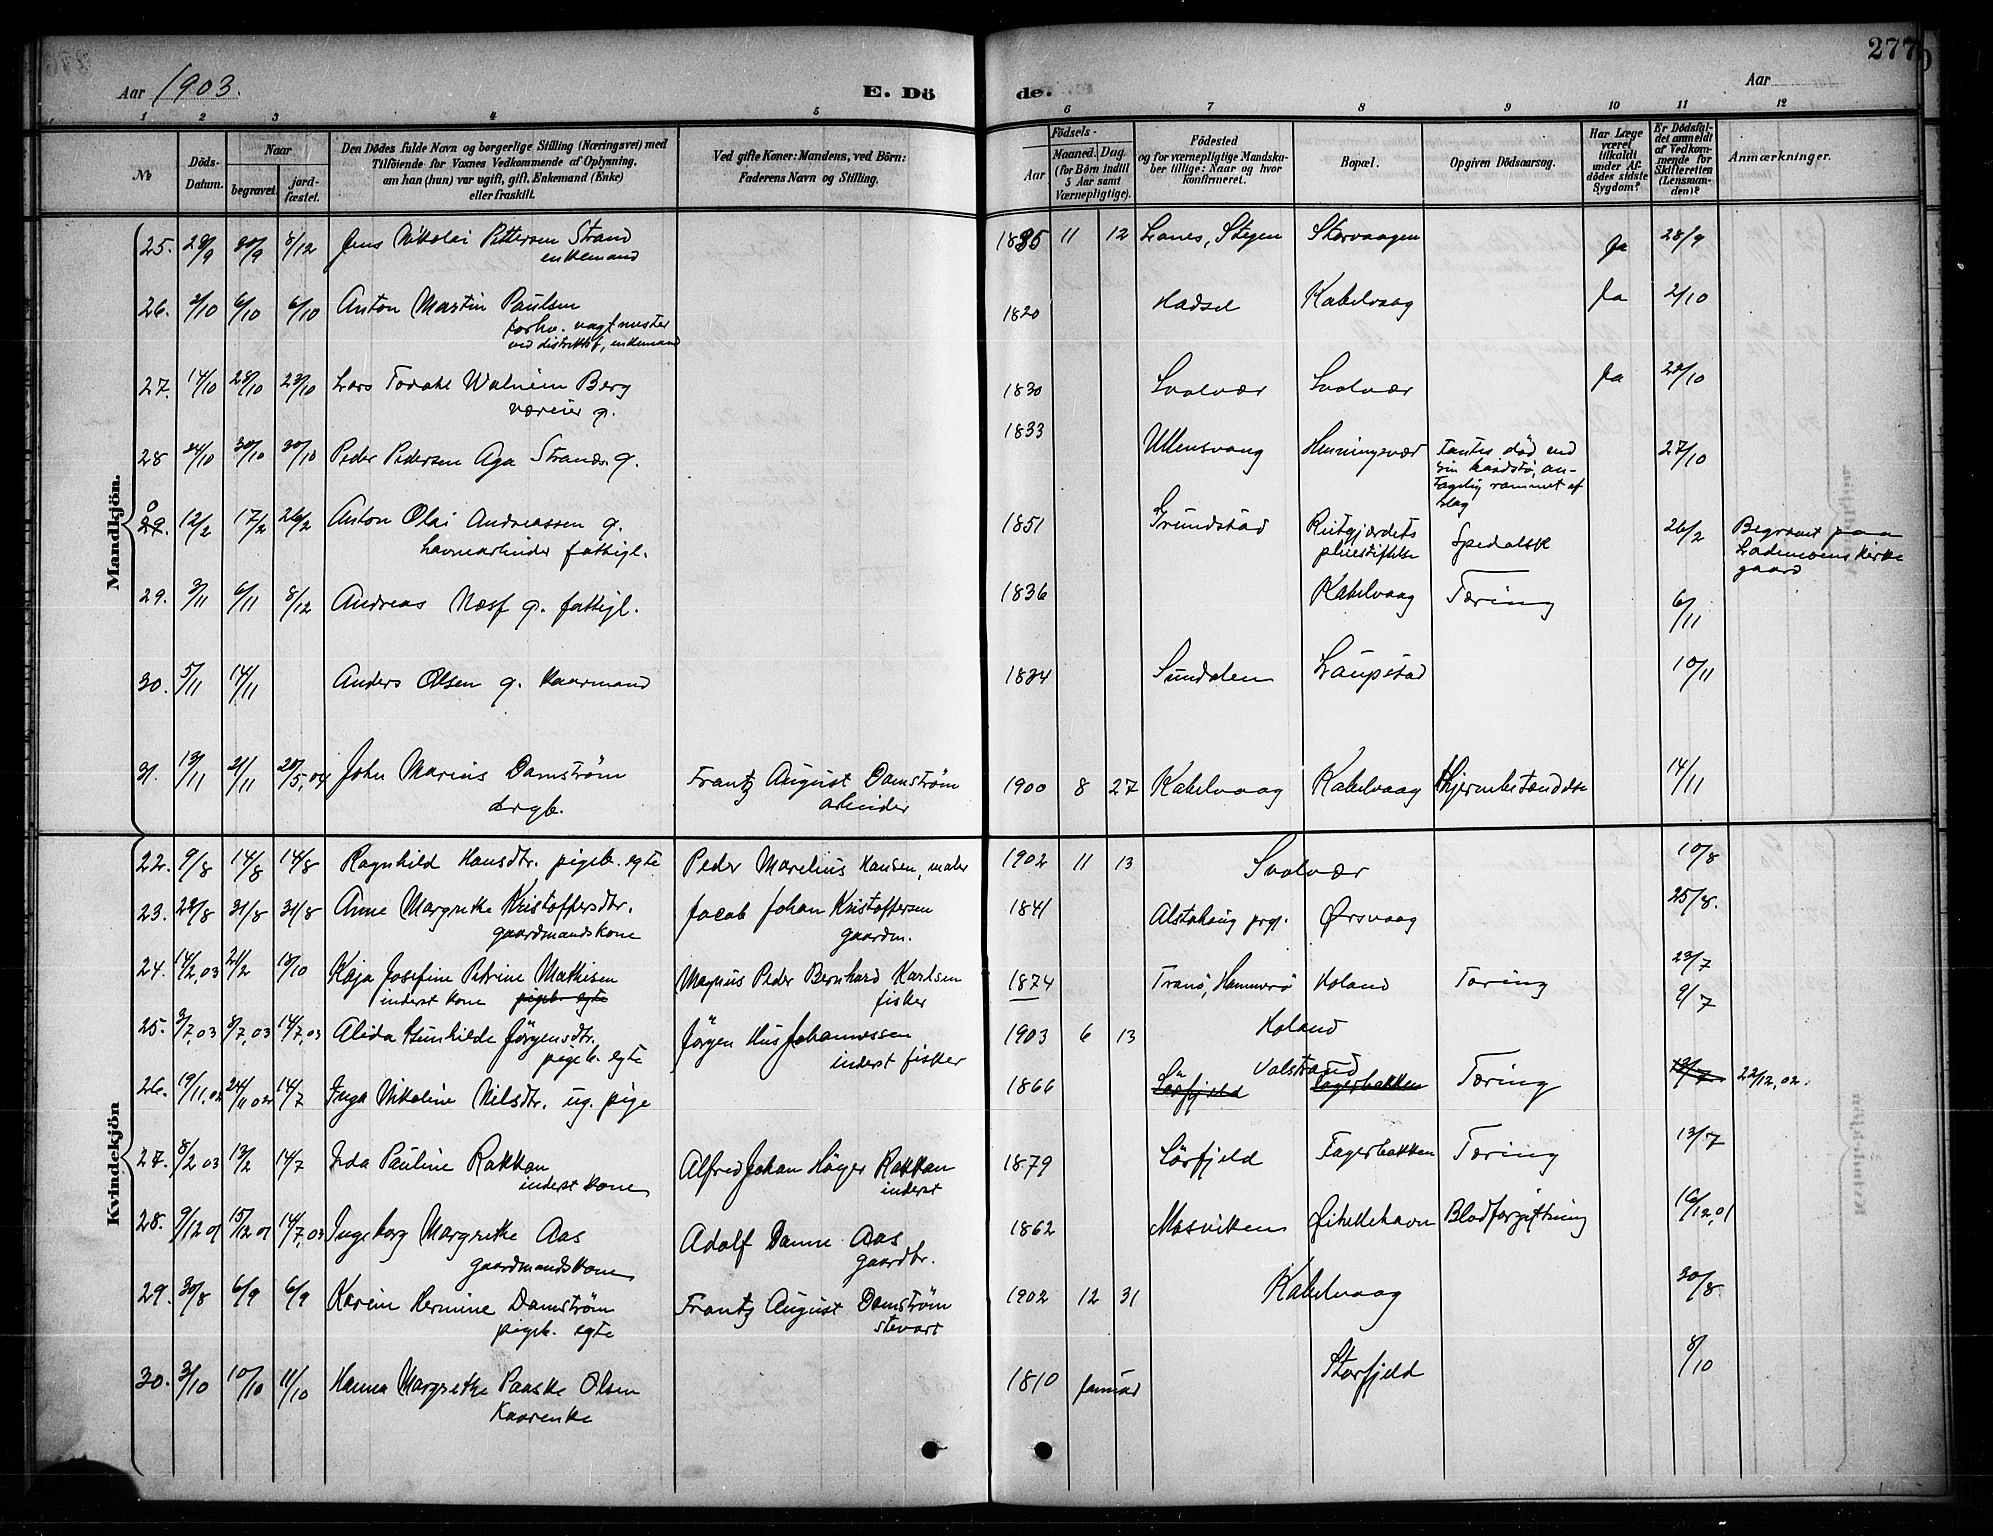 277
Aar 1903.
E. Döde.
Aar
1 2 3 4 5 6 7 8 9 10 11 12
No
Döds-Datum.
Naar
begravet.
jord-fæstet.
Den Dödes fulde Navn og borgerlige Stilling (Næringsvei) med
Tilföiende for Voxnes Vedkommende af Oplysning,
om han (hun) var ugift, gift, Enkemand (Enke)
eller fraskilt.
Ved gifte Koner: Mandens, ved Börn:
Faderens Navn og Stilling.
Födsels-
Aar
Maaned. Dag.
(for Börn indtil
5 Aar samt
Værnepligtige).
Födested
og for værnepligtige Mandska-
ber tillige: Naar og hvor
konfirmeret.
Bopæl.
Opgiven Dödsaarsag.
Har Læge
været
tilkaldt
under Af-
dödes sidste
Sygdom?
Er Dödsfal-
det anmeldt
af Vedkom-
mende for
Skifteretten
(Lensman-
den)?
Anmærkninger.
Mandkjön.
25. 28/9 30/9 8/12 Jens Nikolai Pettersen Strand 1835 11 12 Lanes, Stegen Storvaagen Ja 28/9
enkemand
26. 2/10 6/10 6/10 Anton Martin Paulsen 1820 Hadsel Kabelvaag Ja 2/10
forhv. vagtmester
ved distriktsf, enkemand
27. 14/10 28/10 23/10 Lars Todahl Walnum Berg 1830 Svolvær Svolvær Ja 20/10
væreier g.
28 24/10 30/10 30/10 Peder Pedersen Aga Strands. g. 1833 Ullensvang Henningsvær Fantes död ved 27/10
sin baadstö, an-
tagelig rammet af
slag
0
29. 12/2 17/2 26/2 Anton Olai Andreassen g. 1851 Grundstad Reitgjærdets Spedalsk 26/2 Begravet paa
havnearbeider fattigl. pleiestiftelse Lademoens kirke
gaard
29. 3/11 6/11 8/12 Andreas Næss g. fattigl. 1836 Kabelvaag Tæring 6/11
30. 5/11 14/11 Anders Olsen g. kaarmand 1834 Sundalen Laupstad 10/11
31. 13/11 21/11 20/5,04 John Marius Damström Frantz August Damström 1900 8 27 Kabelvaag Kabelvaag Hjernebetændelse 14/11
drgb. arbeider
Kvindekjön
22. 9/8 14/8 14/8 Ragnhild Hansdtr. pigeb. egte Peder Marelius Hansen, maler 1902 11 13 Svolvær 10/8
23. 22/8 31/8 31/8 Anne Margrethe Kristoffersdtr. Jacob Johan Kristoffersen 1841 Alstahaug prgj. Ørsvaag 25/8.
gaardmandskone gaardm.
24. 14/2,03 21/2 13/10 Kaja Josefine Petrine Mathisen Magnus Peder Bernhard Karlsen 1874 Tranö, Hammerö Holand Tæring 23/7
inderst kone pigeb. egte fisker
25. 3/7,03 8/7,03 14/7,03 Alida Gunhilde Jørgensdtr. Jörgen Hus Johannessen 1903 6 13 Holand 9/7
pigeb. egte inderst fisker
26. 19/11,02 24/11 02 14/7 Inga Nikoline Nilsdtr. ug. pige 1866 Sörfjeld Valstrand Fagerbakken Tæring 13/7 22/12,02.
27. 8/2 03 13/2 14/7 Ida Pauline Rakkan Alfred Johan Höyer Rakkan 1879 Sörfjeld Fagerbakken Tæring 13/7
inderst kone inderst
28. 9/12 01 15/12 01 14/7,03 Ingeborg Margrethe Aas Adolf Danne Aas 1862 Mosviken Ørhellehavn Blodforgiftning 16/12,01
gaardmandskone gaardbr.
29. 30/8 6/9 6/9 Karin Hermine Damström Frantz August Damström 1902 12 31 Kabelvaag 30/8
pigeb. egte stevart
30. 3/10 10/10 11/10 Hanna Margrethe Paaske Olsen 1810 januar Storfjeld 8/10
Kaarenke